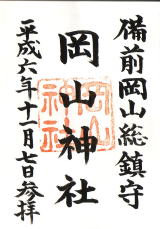 備前岡山総鎮守
岡山神社
平成六年十一月七日参拝
岡山
神社